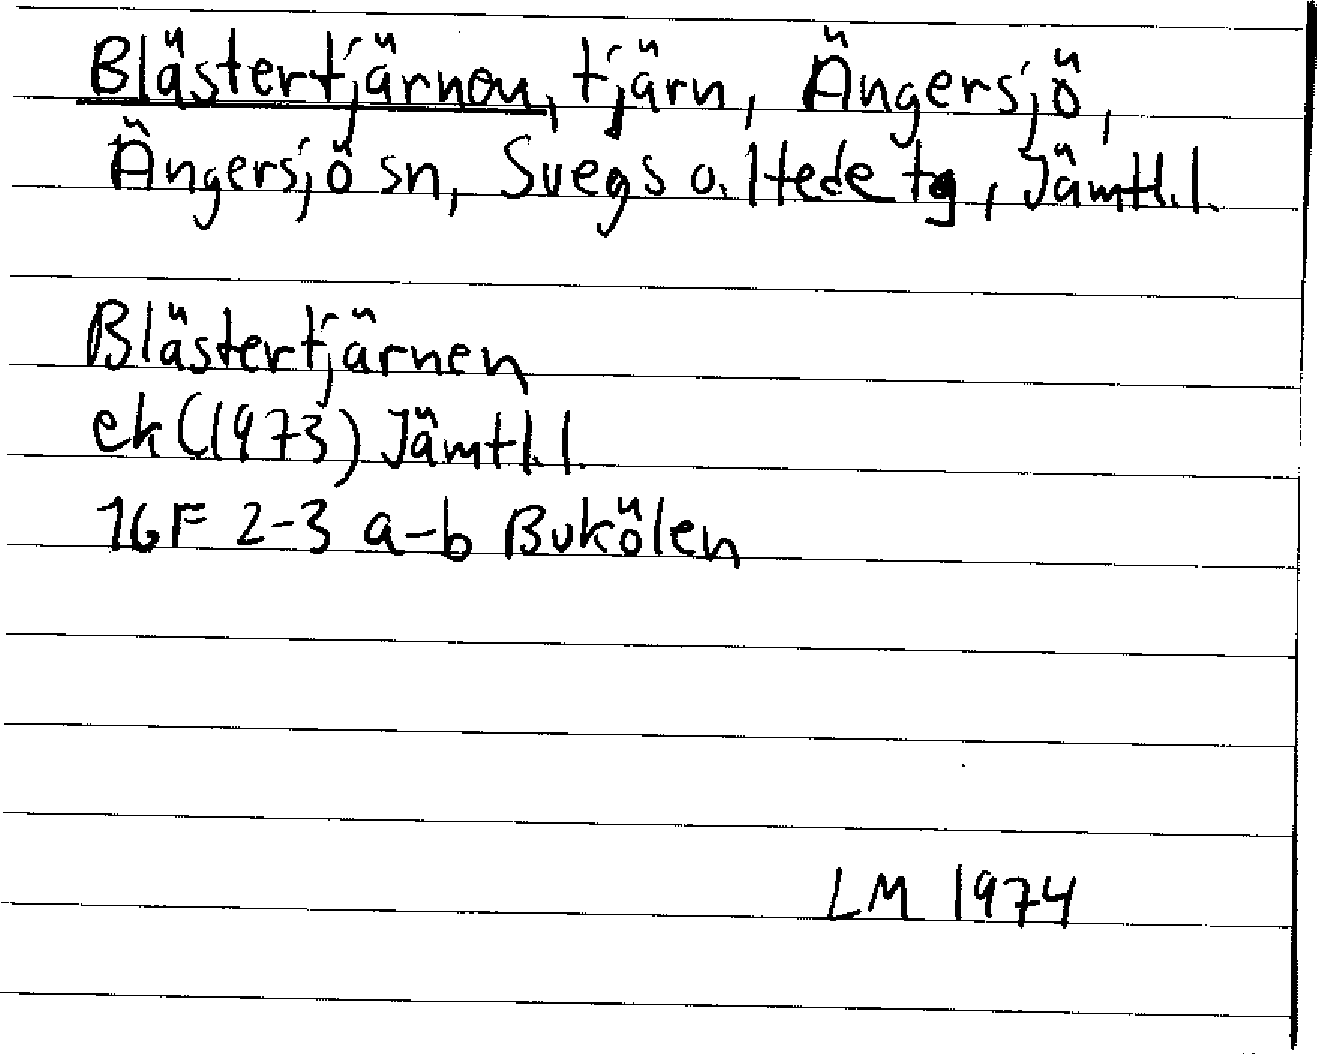 Blästertjärnen, tjärn, Ängersjö,
Ängersjö sn, Svegs o. Hede tg, Jämtl.l.
Blästertjärnen
ek (1973) Jämtl.l.
16F 2-3 a-b Bukölen
LM 1974